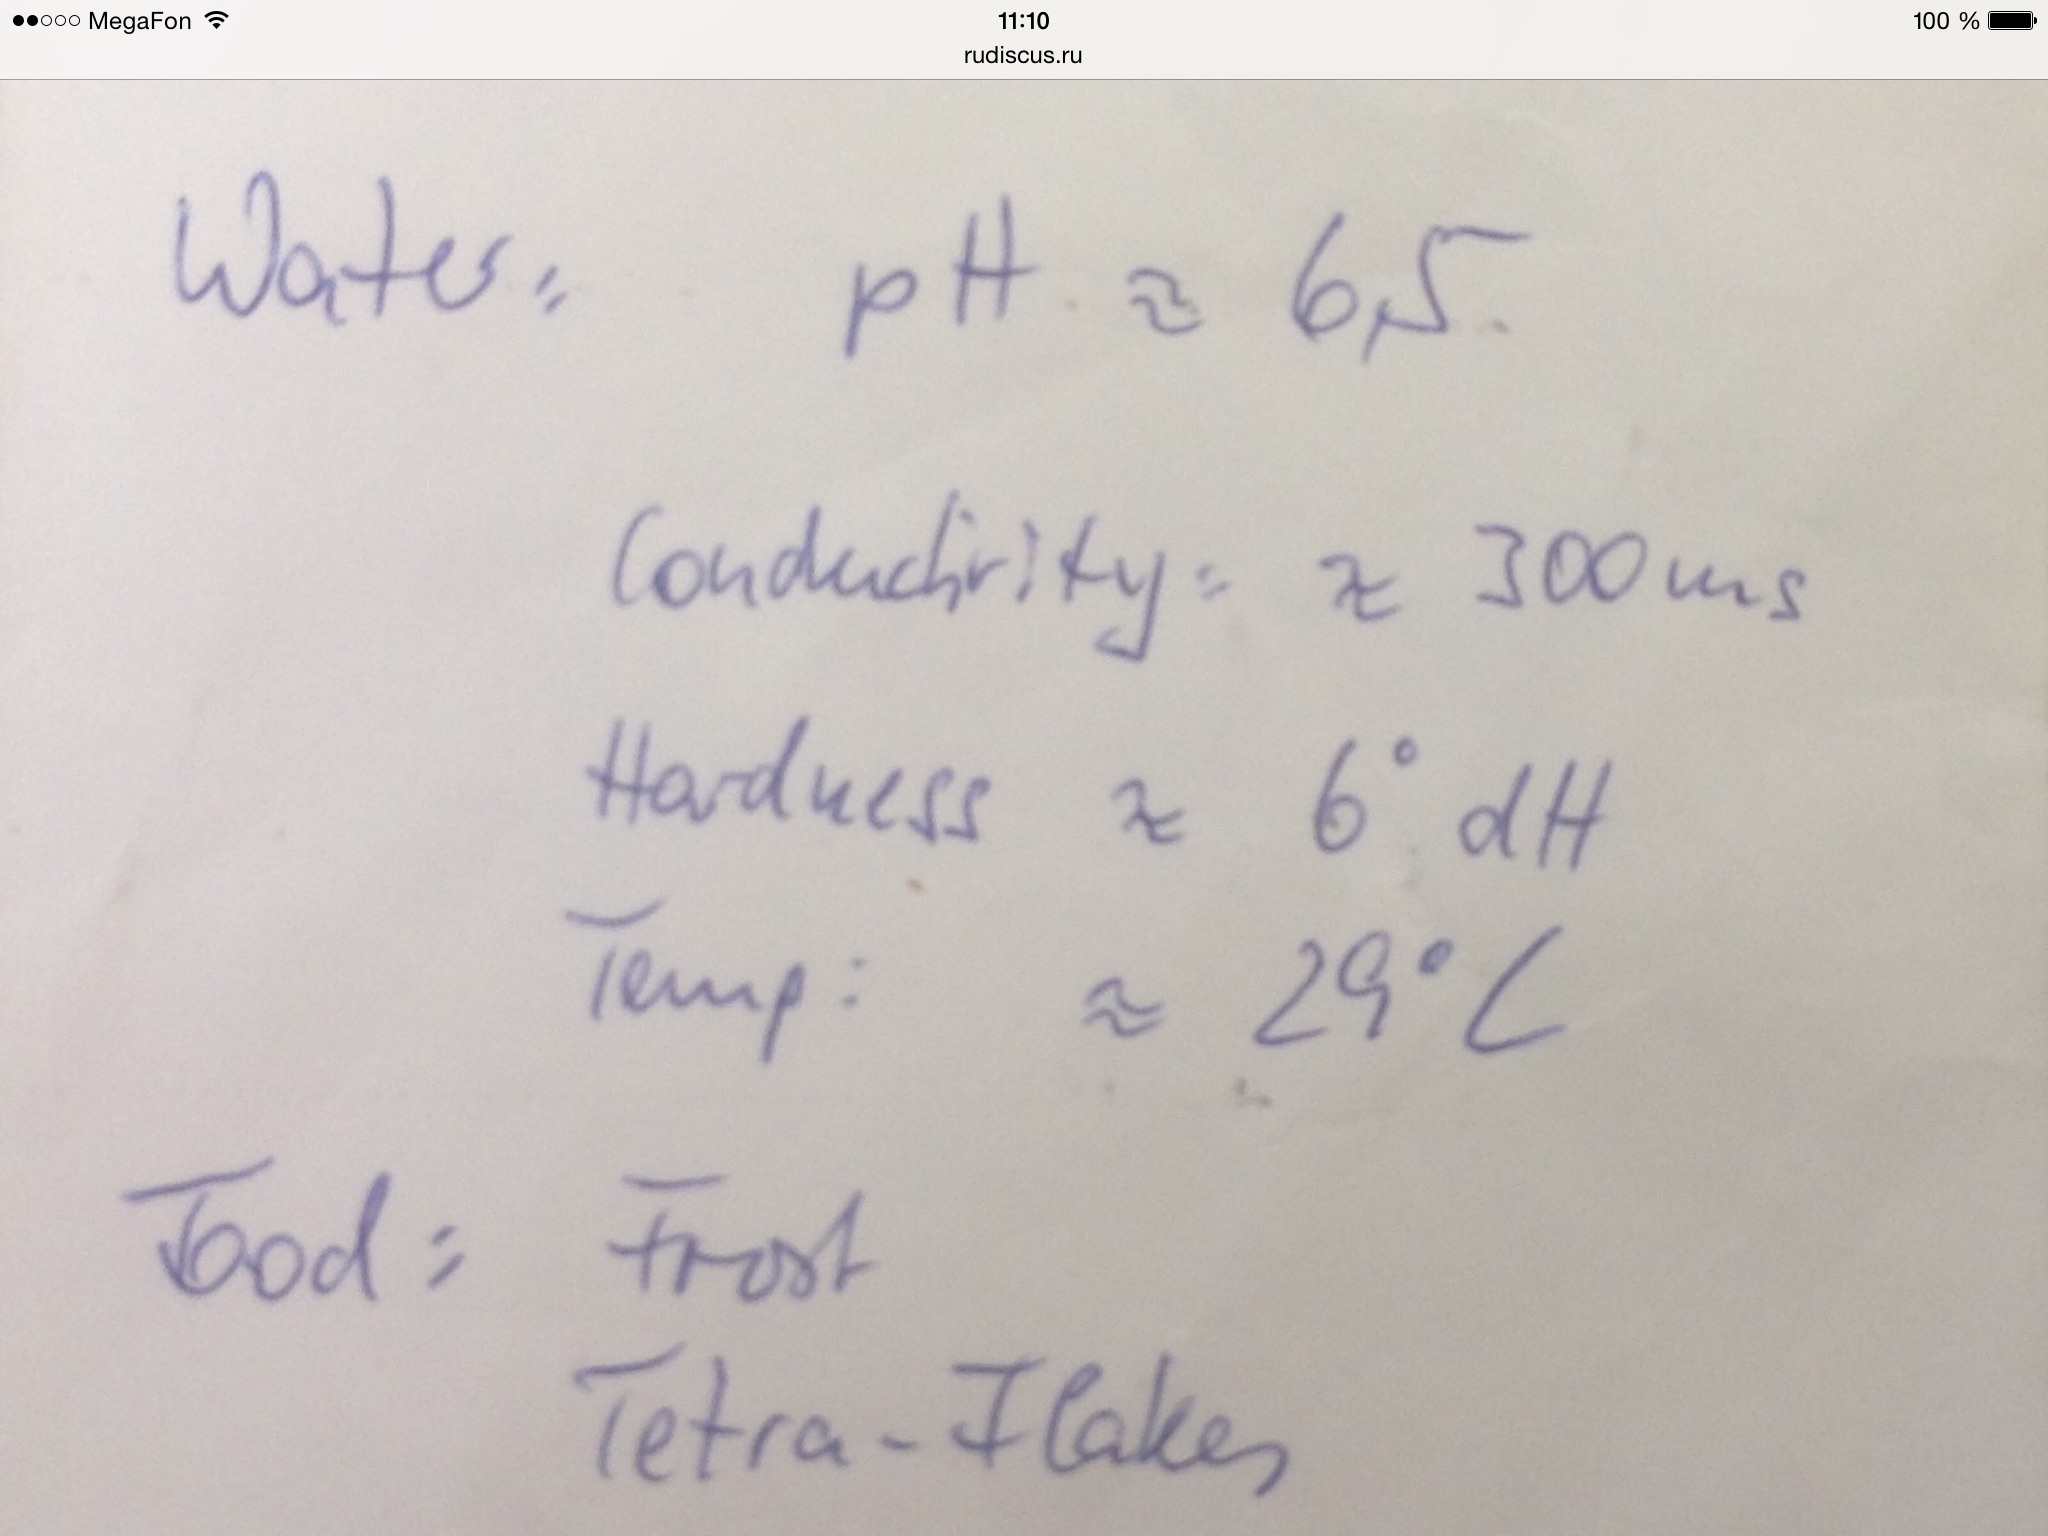 MegaFon 11:10 100 %
rudiscus.ru
Water: pH ≈ 6,5
Conductivity: ≈ 300 ms
Hardness ≈ 6° dH
Temp: ≈ 29° C
Food: Frost
Tetra-Flakes